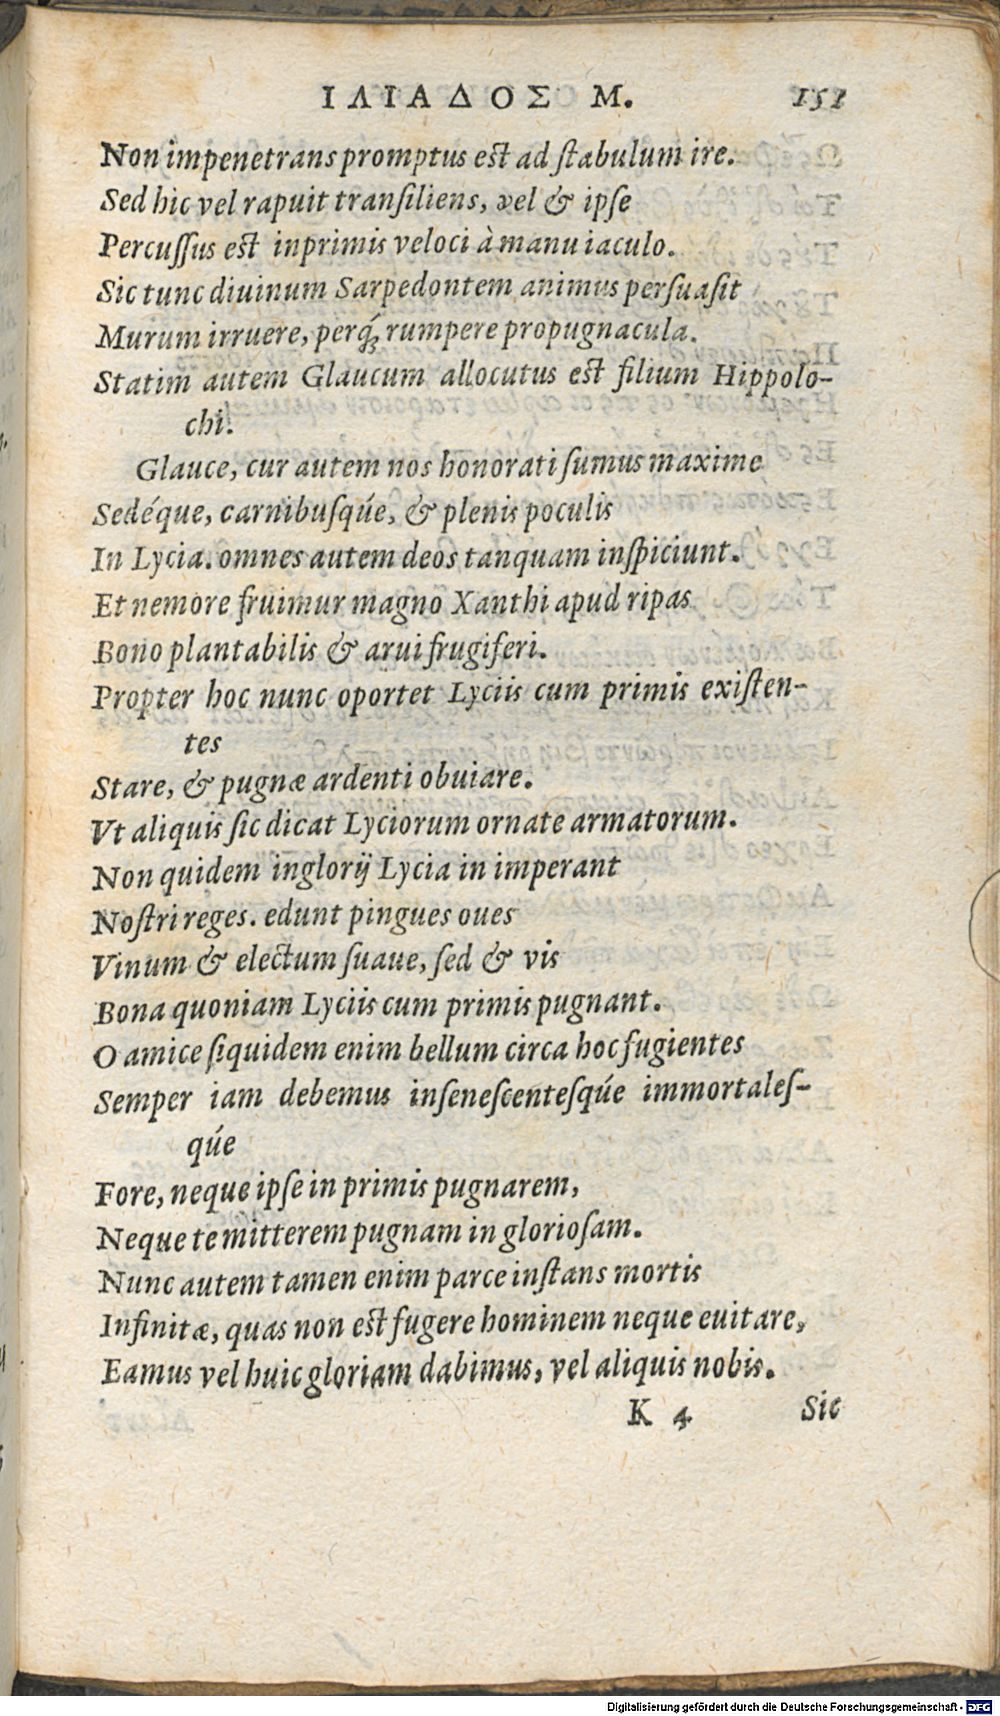 ΙΛΙΑΔΟΣ Μ. 151
Non impenetrans promptus est ad ſtabulum ire.
Sed hic vel rapuit tranſiliens, vel & ipſe
Percuſſus est inprimis veloci à manu iaculo.
Sic tunc diuinum Sarpedontem animus perſuaſit
Murum irruere, perq́ꝫ rumpere propugnacula.
Statim autem Glaucum allocutus est filium Hippolo-
chi.
Glauce, cur autem nos honorati ſumus maxime
Sedéque, carnibuſqúe, & plenis poculis
In Lycia. omnes autem deos tanquam inſpiciunt.
Et nemore fruimur magno Xanthi apud ripas
Bono plantabilis & arui frugiferi.
Propter hoc nunc oportet Lyciis cum primis exiſten-
tes
Stare, & pugnæ ardenti obuiare.
Vt aliquis ſic dicat Lyciorum ornate armatorum.
Non quidem inglorij Lycia in imperant
Noſtri reges. edunt pingues oues
Vinum & electum ſuaue, ſed & vis
Bona quoniam Lyciis cum primis pugnant.
O amice ſiquidem enim bellum circa hoc fugientes
Semper iam debemus inſeneſcenteſqúe immortaleſ-
qúe
Fore, neque ipſe in primis pugnarem,
Neque te mitterem pugnam in glorioſam.
Nunc autem tamen enim parce inſtans mortis
Infinitæ, quas non est fugere hominem neque euitare,
Eamus vel huic gloriam dabimus, vel aliquis nobis.
K 4 Sic
Digitalisierung gefördert durch die Deutsche Forschungsgemeinschaft - DFG